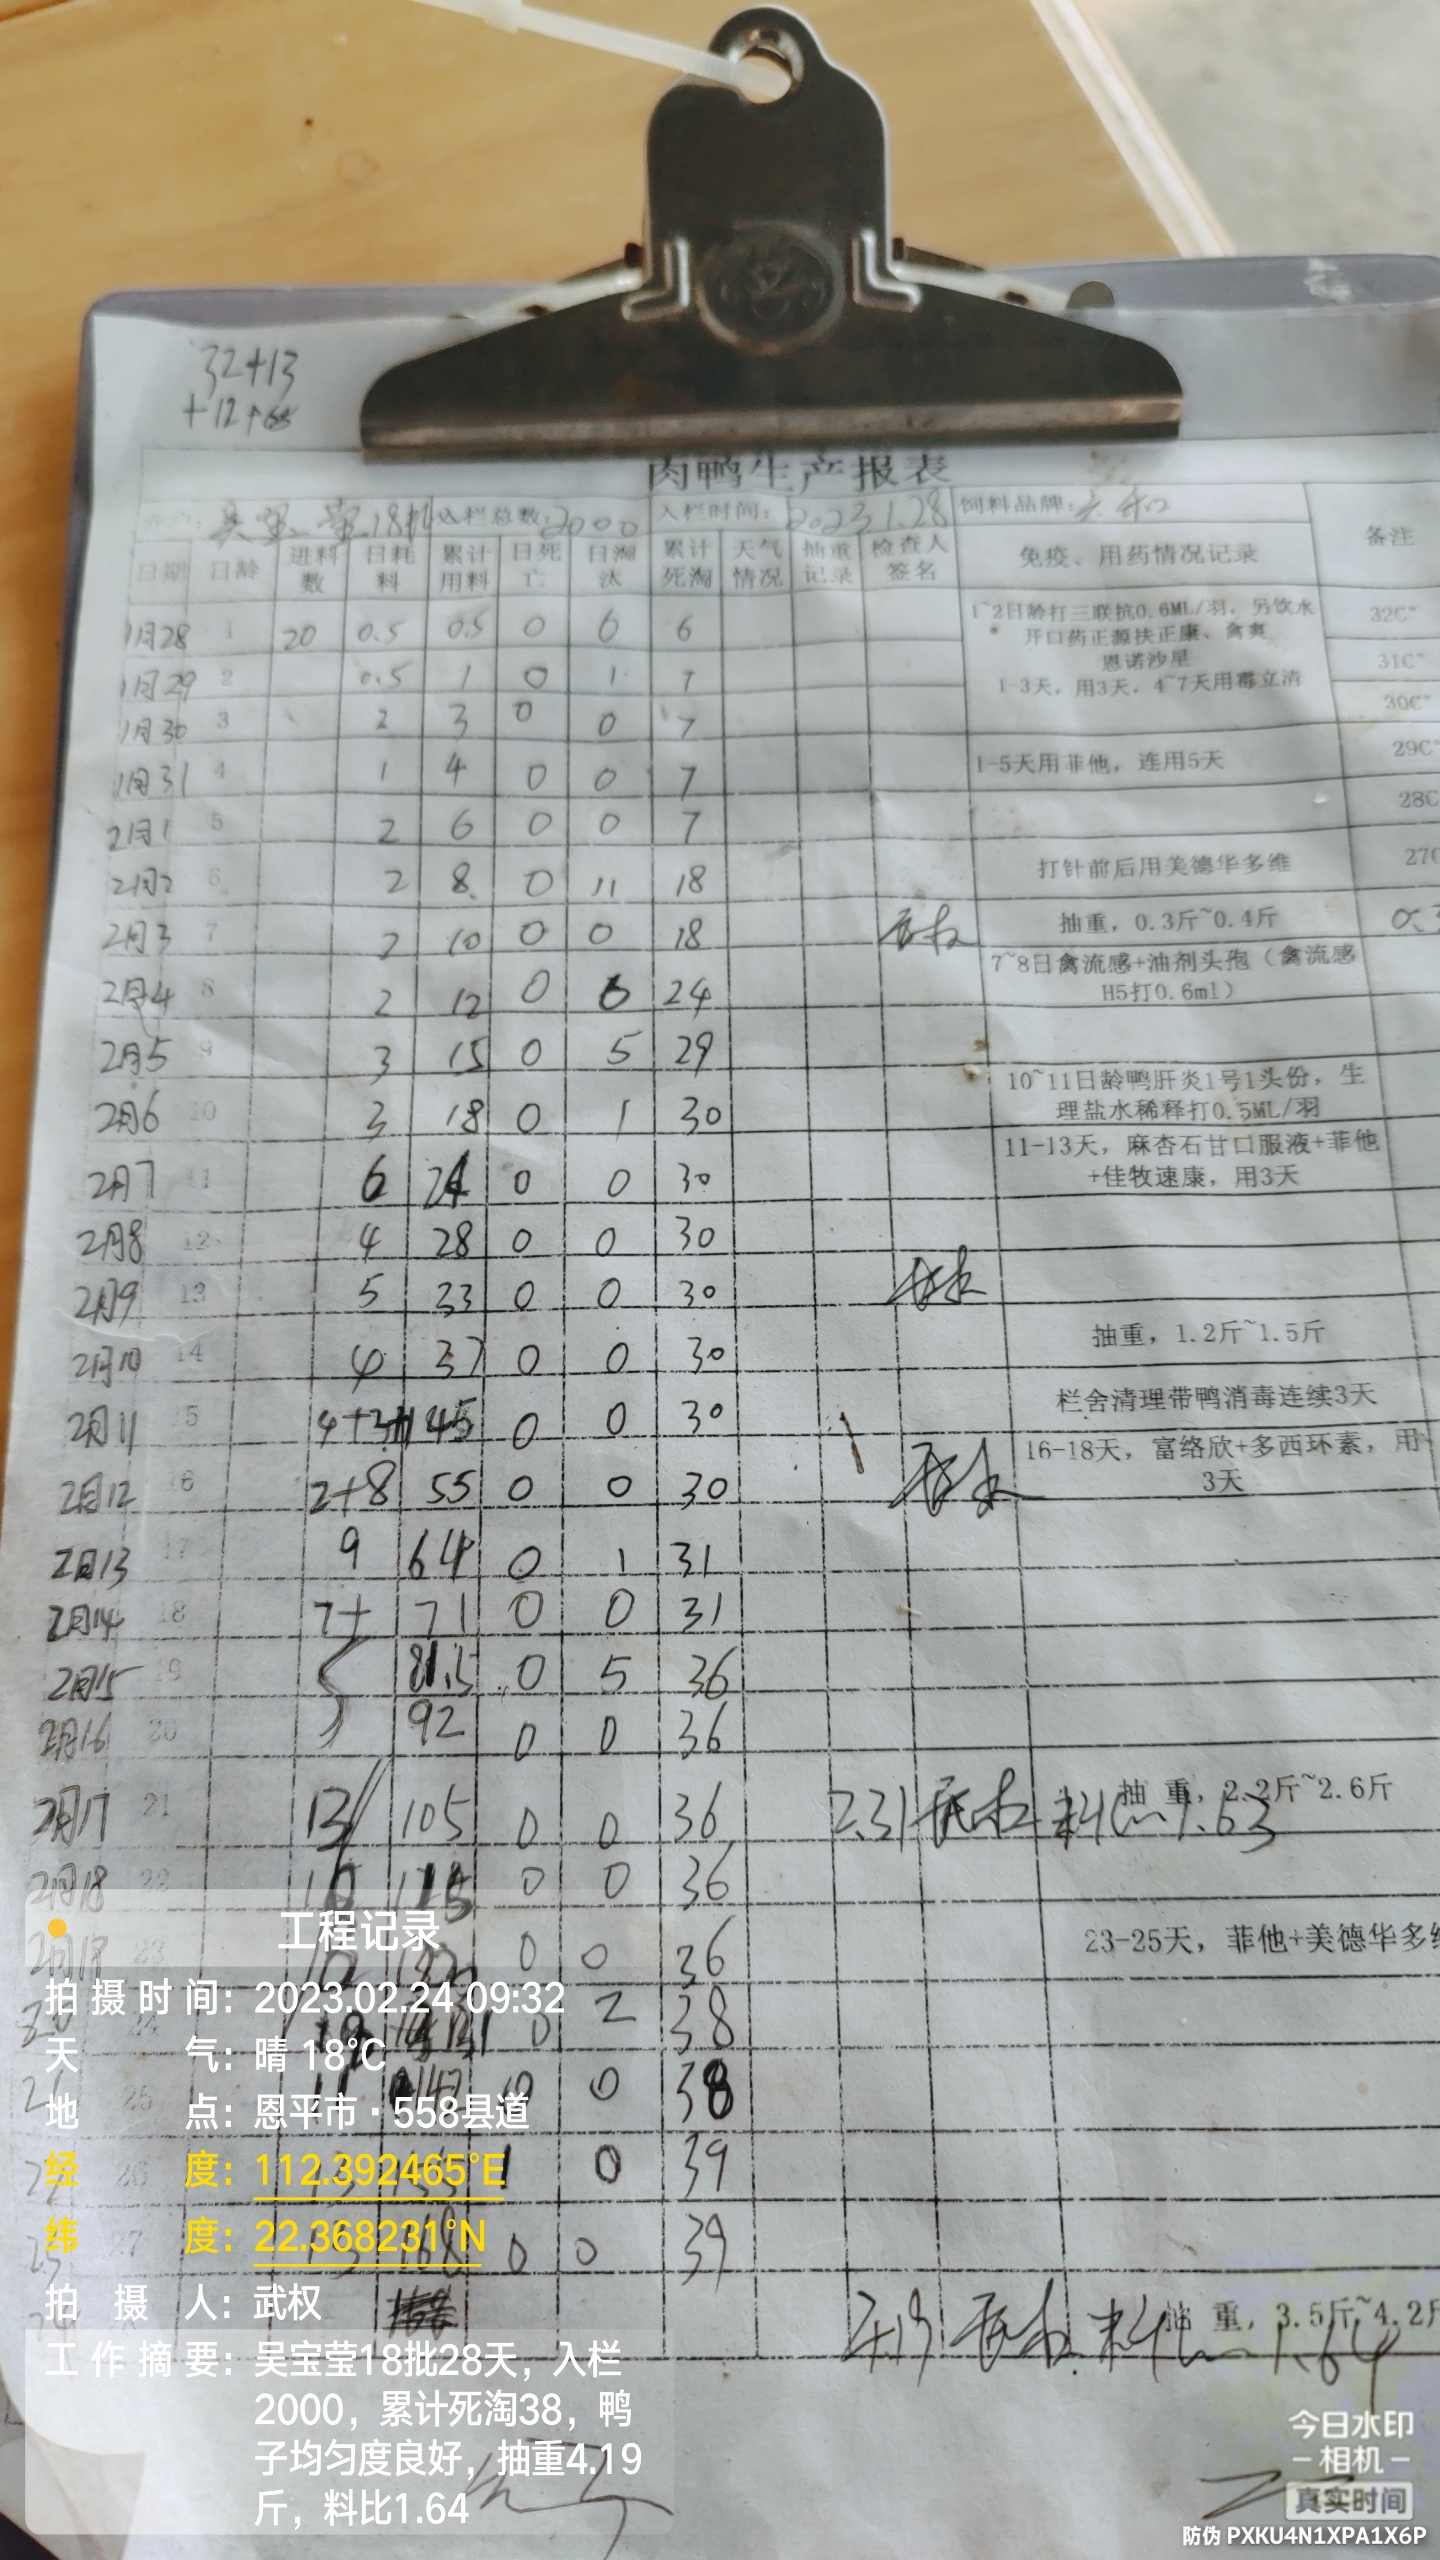 32+13
+12+
肉鸭生产报表
18批 入栏总数:2000 入栏时间:2023.1.28 饲料品牌:六和 备注
日期 日龄 进料数 日耗料 累计用料 日死亡 日淘汰 累计死淘 天气情况 抽重记录 检查人签名 免疫、用药情况记录
1月28 1 20 0.5 0.5 0 6 6 32C°
1~2日龄打三联抗0.6ML/羽,另饮水
开口药正源扶正康、禽爽
恩诺沙星
1-3天,用3天,4~7天用霉立清
1月29 2 0.5 1 0 1 7 31C°
1月30 3 2 3 0 0 7 30C°
1月31 4 1 4 0 0 7 1-5天用菲他,连用5天 29C°
2月1 5 2 6 0 0 7 28C
2月2 6 2 8 0 11 18 打针前后用美德华多维 27C
2月3 7 2 10 0 0 18 抽重,0.3斤~0.4斤
2月4 8 2 12 0 6 24 7~8日禽流感+油剂头孢(禽流感
H5打0.6ml)
2月5 9 3 15 0 5 29
2月6 10 3 18 0 1 30 10~11日龄鸭肝炎1号1头份,生
理盐水稀释打0.5ML/羽
2月7 11 6 24 0 0 30 11-13天,麻杏石甘口服液+菲他
+佳牧速康,用3天
2月8 12 4 28 0 0 30
2月9 13 5 33 0 0 30
2月10 14 4 37 0 0 30 抽重,1.2斤~1.5斤
2月11 15 45 0 0 30 栏舍清理带鸭消毒连续3天
2月12 16 2+8 55 0 0 30 16-18天,富络欣+多西环素,用
3天
2月13 17 9 64 0 1 31
2月14 18 7+ 71 0 0 31
2月15 19 81.5 0 5 36
2月16 20 92 0 0 36
2月17 21 13 105 0 0 36 2.31 料比 1.63 抽 重,2.2斤~2.6斤
2月18 22 10 115 0 0 36
23 0 0 36 23-25天,菲他+美德华多维
24 0 2 38
25 0 0 38
26 1 0 39
27 13 168 0 0 39
4.19 料比 1.64 抽 重,3.5斤~4.2斤
工程记录
拍摄时间:2023.02.24 09:32
天气:晴 18°C
地点:恩平市·558县道
经度:112.392465°E
纬度:22.368231°N
拍摄人:武权
工作摘要:吴宝莹18批28天,入栏
2000,累计死淘38,鸭
子均匀度良好,抽重4.19
斤,料比1.64
今日水印
-相机-
真实时间
防伪 PXKU4N1XPA1X6P